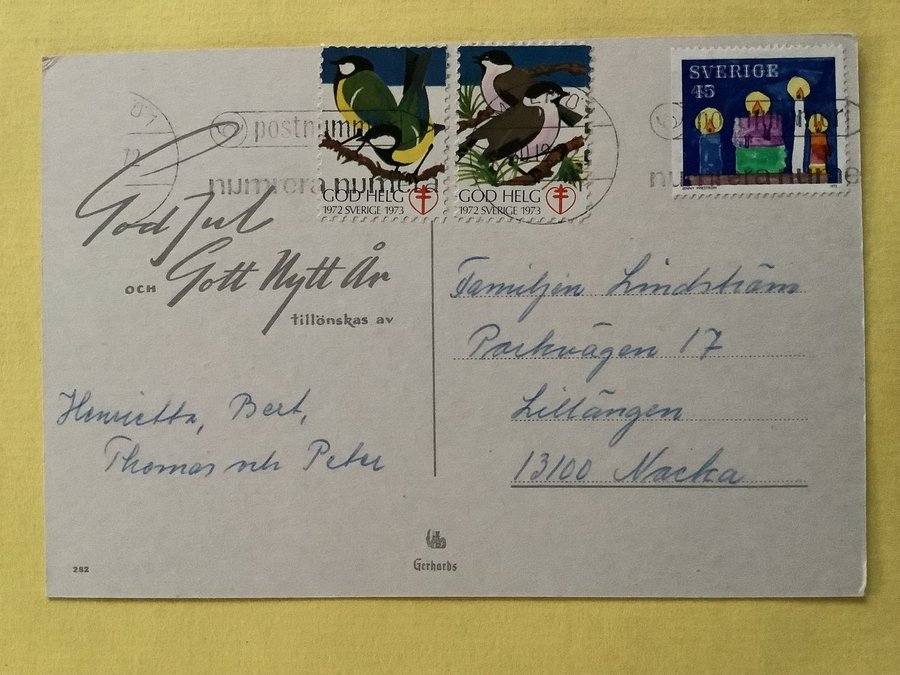 SVERIGE
45
GOD HELG
1972 SVERIGE 1973
GOD HELG
1972 SVERIGE 1973
postnumm
numrera numera
numrera nume
God Jul
OCH Gott Nytt År
tillönskas av
Henrietta, Bert,
Thomas och Peter
Familjen Lindström
Parkvägen 17
Lillängen
13100 Nacka
Gerhards
282